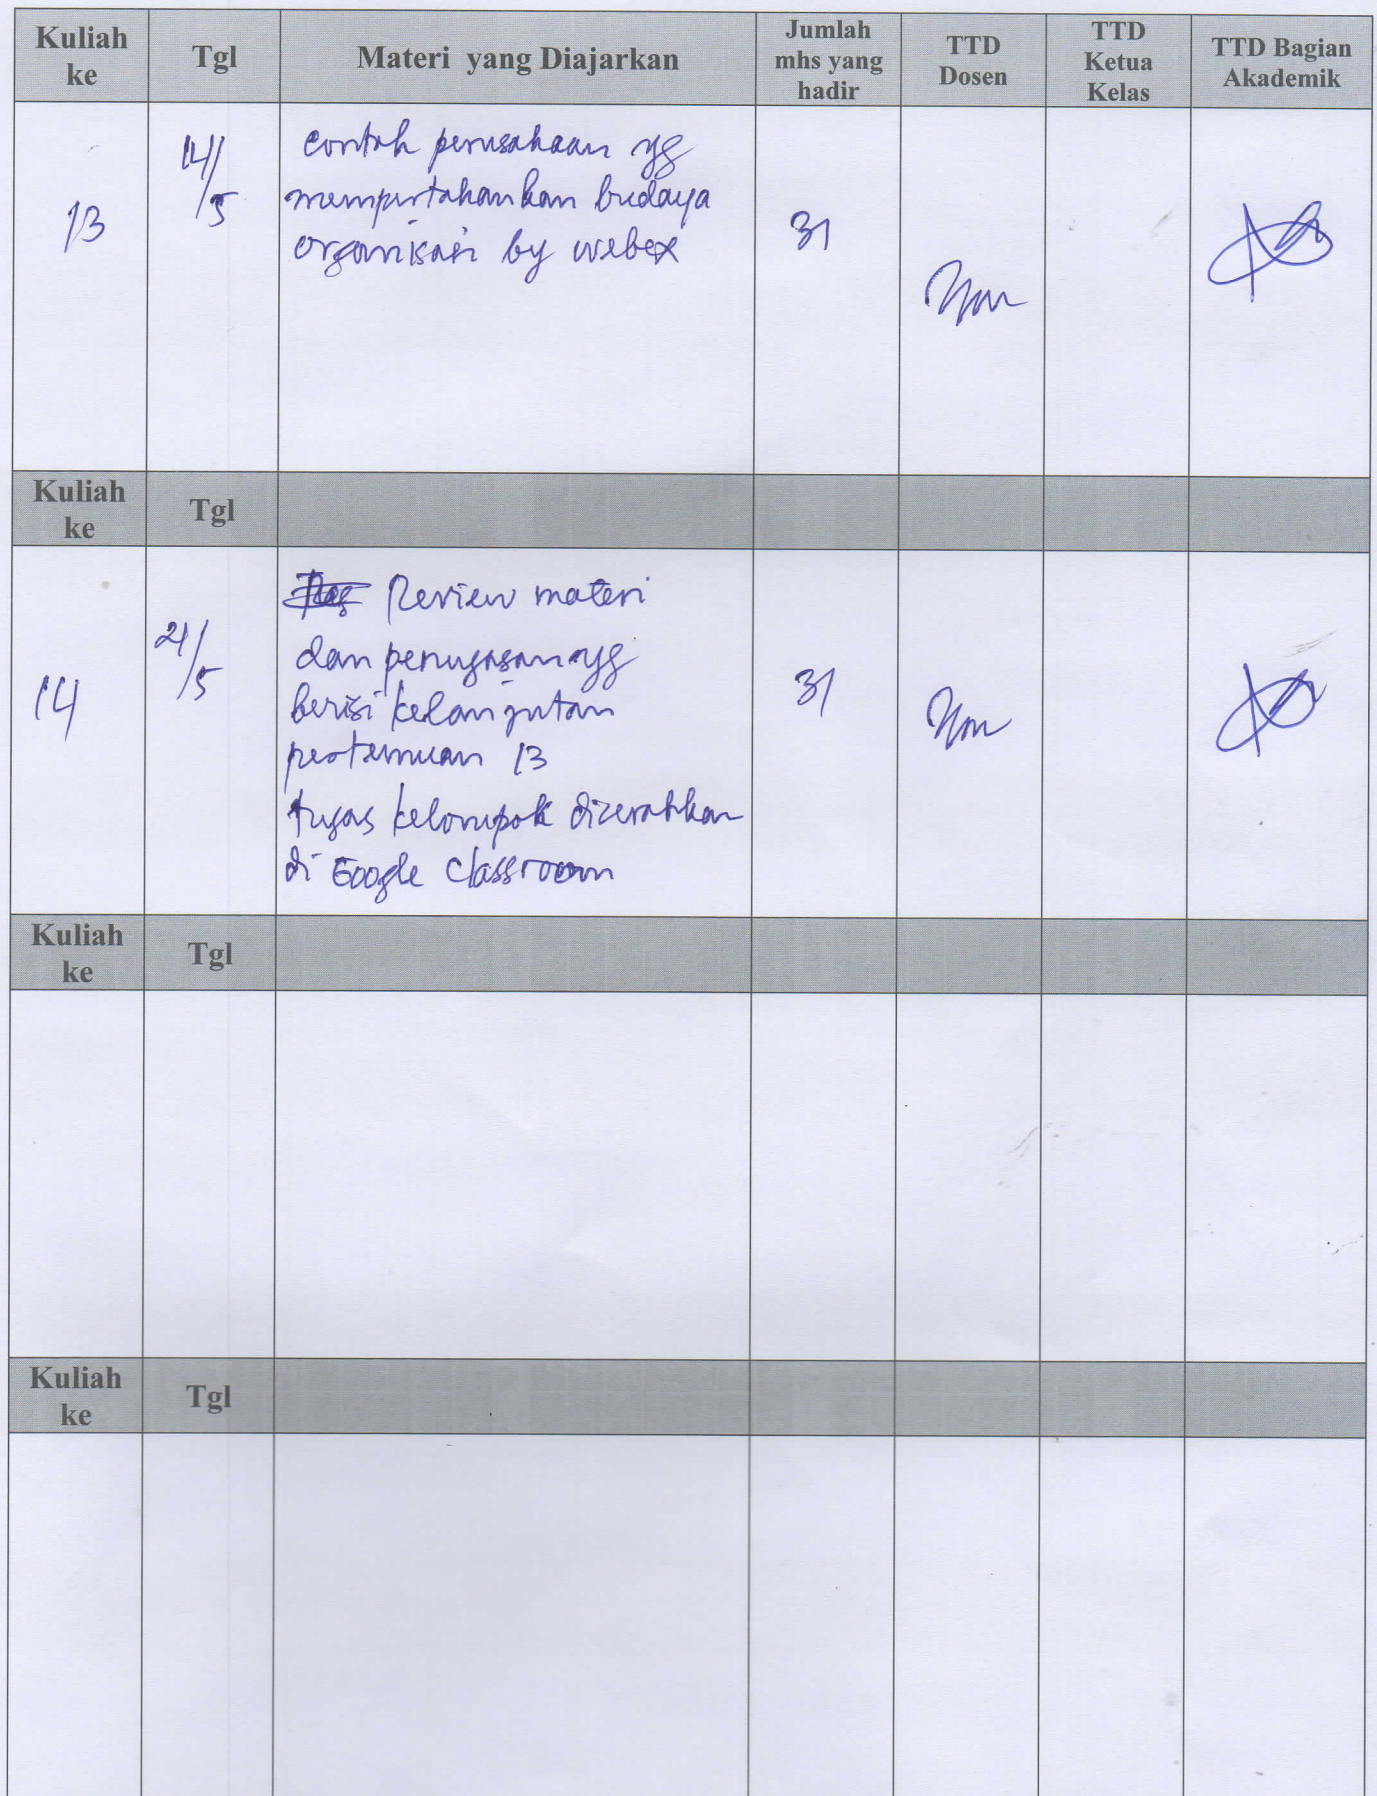 Kuliah ke Tgl Materi yang Diajarkan Jumlah mhs yang hadir TTD Dosen TTD Ketua Kelas TTD Bagian Akademik
13 14/5 contoh perusahaan yg
mempertahankan budaya
organisasi by webex
31
Kuliah ke Tgl
14 21/5 Review materi
dan penugasan yg
berisi kelanjutan
pertemuan 13
tugas kelompok diserahkan
di Google Classroom
31
Kuliah ke Tgl
Kuliah ke Tgl